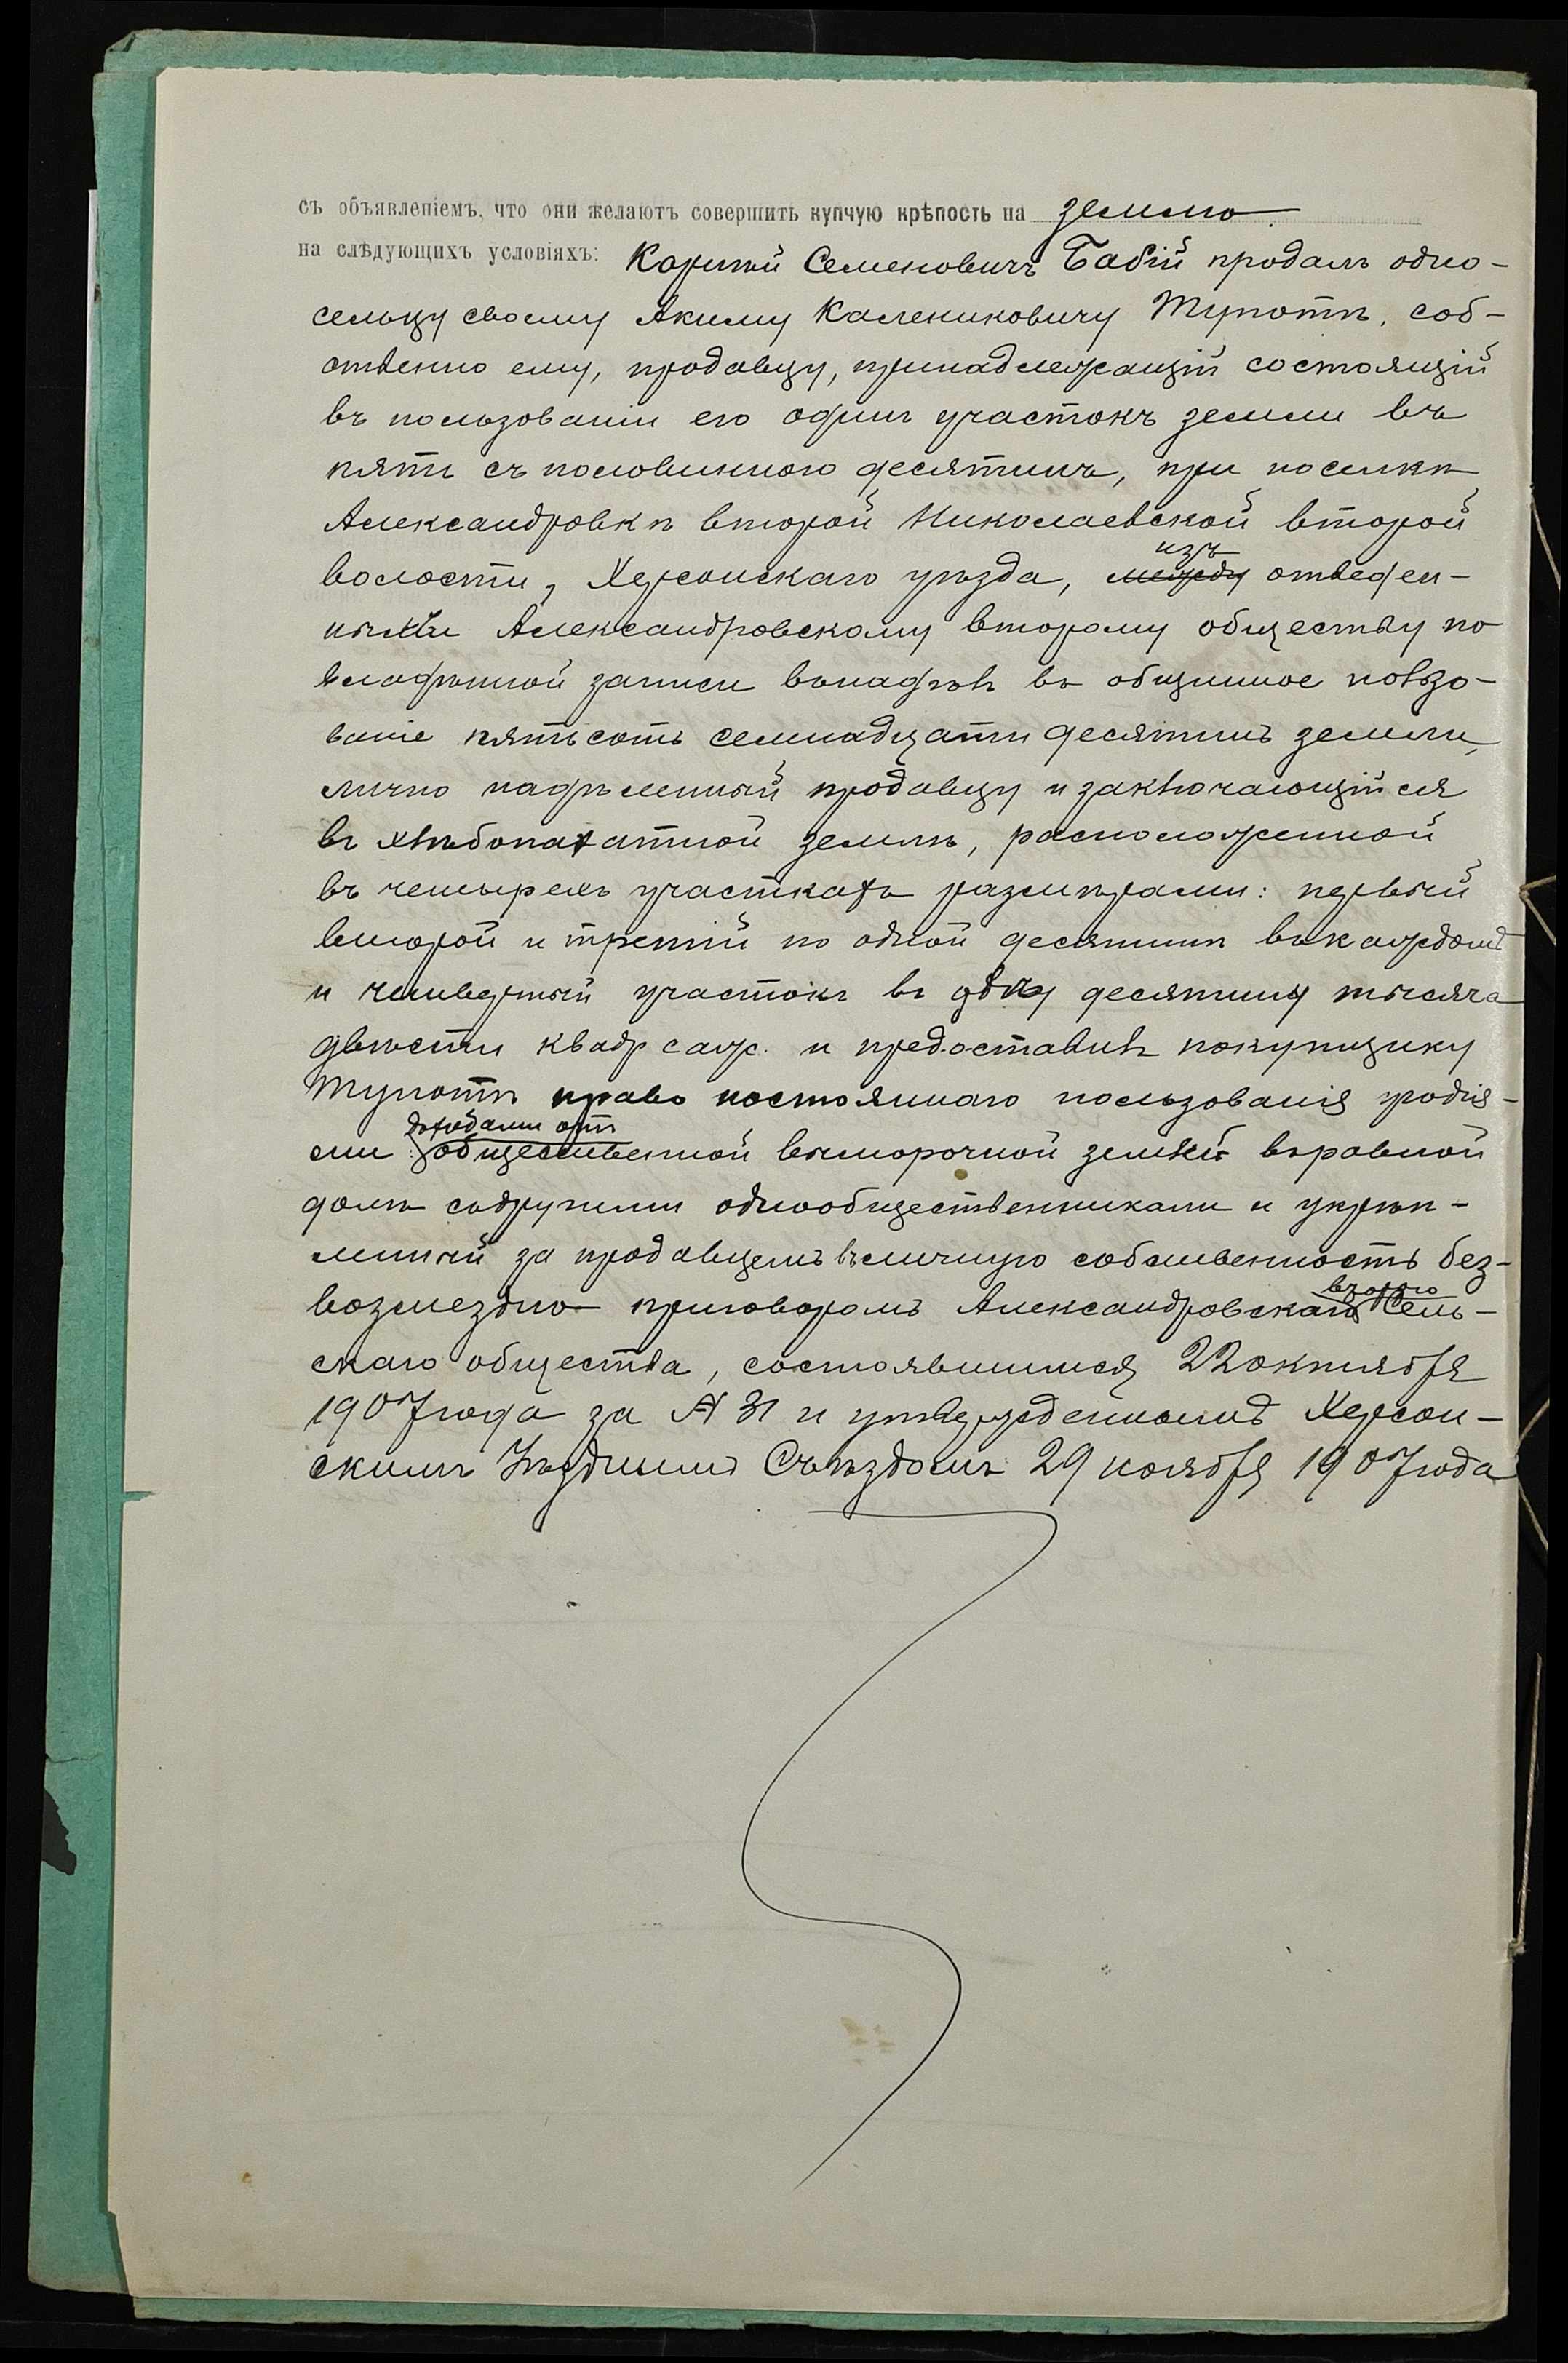 съ объявленіемъ, что они желаютъ совершить купчую крѣпость на землю
на слѣдующихъ условіяхъ: Корнѣй Семеновичъ Бабій продалъ одно-
сельцу своему Акиму Калениковичу Тупотѣ, соб-
ственно ему, продавцу, принадлежащій состоящій
въ пользованіи его одинъ участокъ земли въ
пять съ половиною десятинъ, при поселкѣ
Александровкѣ второй Николаевской второй
волости, Херсонскаго уѣзда, между изъ отведен-
ныхъ Александровскому второму обществу по
владѣнной записи въ надѣлъ въ общинное пользо-
ваніе пятьсотъ семнадцати десятинъ земли,
лично надѣленный продавцу и заключающійся
въ хлѣбопахатной землѣ, расположенной
въ четырехъ участкахъ размѣрами: первый
второй и третій по одной десятинѣ въ каждомъ
и четвертый участокъ въ десятины тысяча
двѣсти квадр саж. и предоставилъ покупщику
Тупотѣ право постояннаго пользованія угодія-
ми доходами отъ общественной выморочной земли въ равной
долѣ съ другими однообщественниками и укрѣп-
ленный за продавцемъ въ личную собственность без-
возмездно приговоромъ Александровскаго второго Сель-
скаго общества, состоявшимся 22 октября
1907 года за № 31 и утвержденнымъ Херсон-
скимъ Уѣзднымъ Съѣздомъ 29 ноября 1907 года